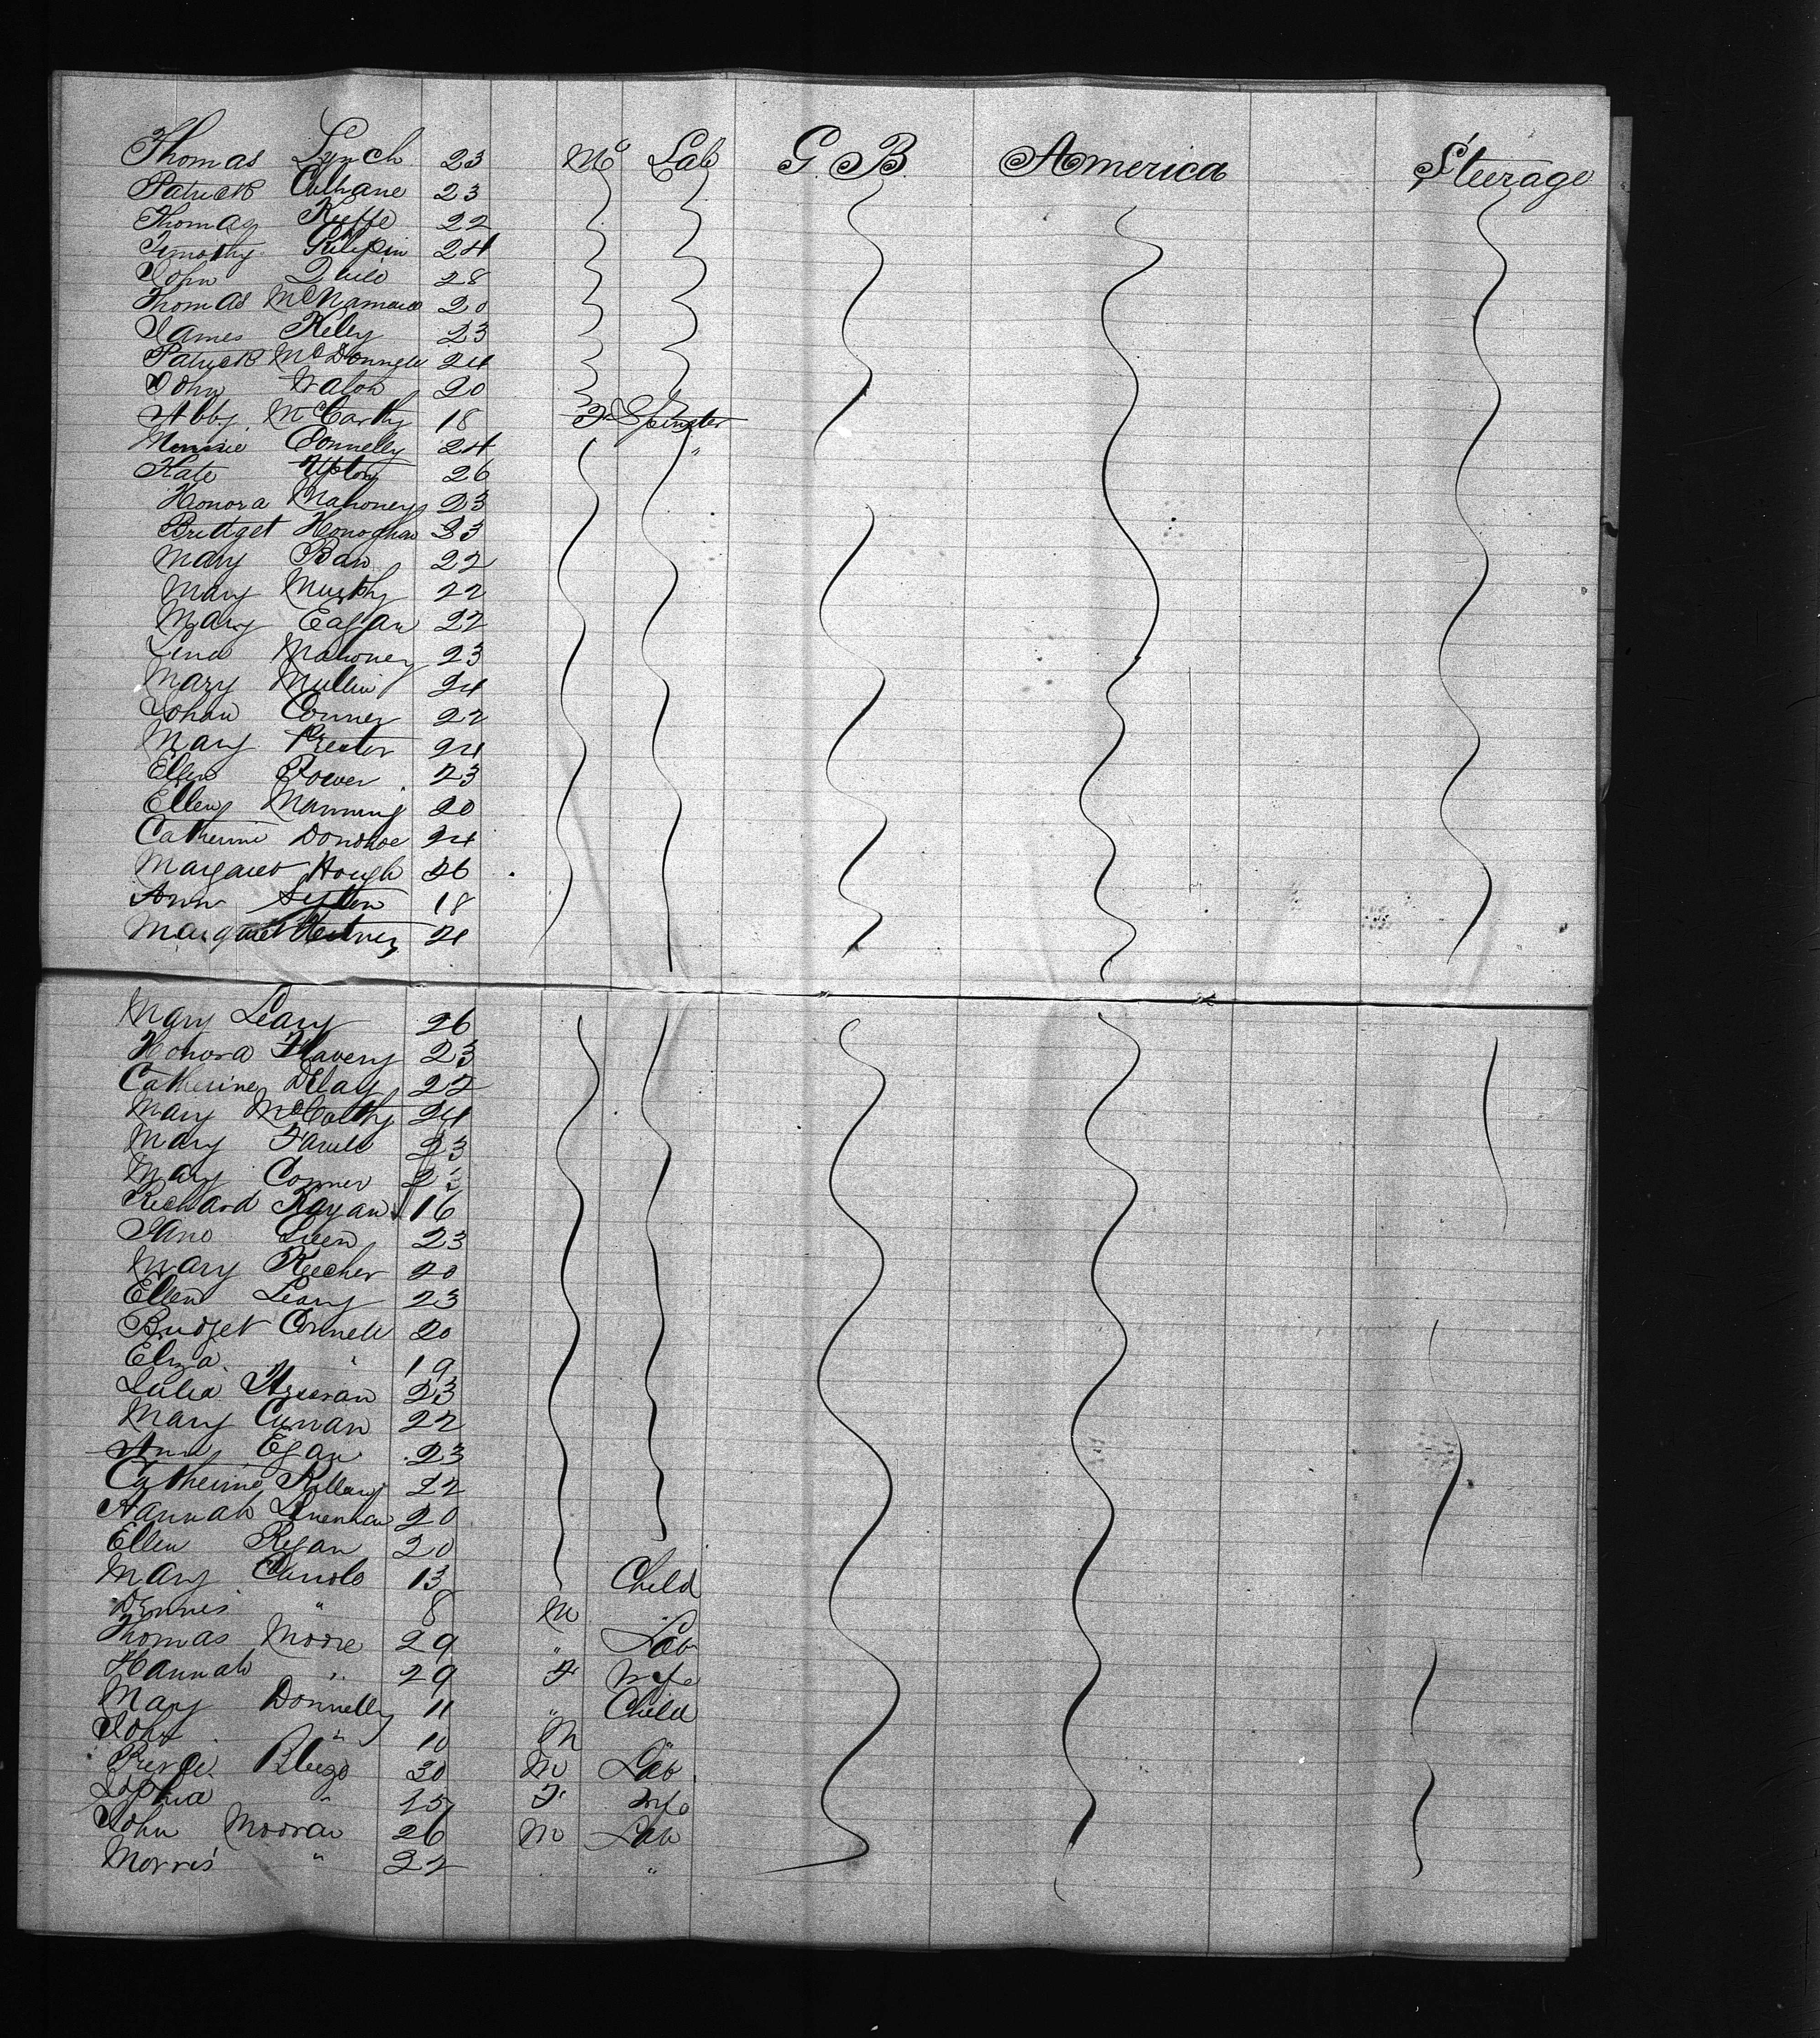 Thomas Lynch 23 M Lab G. B. America Steerage
Patrick Culhane 23
Thomas Keeffe 22
Timothy 24
John 28
Thomas McNamara 20
James Kiley 23
Patrick McDonnell 24
John Walsh 20
Abby McCarthy 18 F Spinster
Connelly 24 "
Kate Upton 26
Honora Mahoney 23
Bridget Honoghan 23
Mary 22
Mary Murphy 22
Mary Eagan 22
Lena Mahoney 23
Mary Mullin 24
Johan Conner 22
Mary 24
Ellen Power 23
Ellen Manning 20
Catherine Donohoe 24
Margaret Hough 26
Ann 18
Margaret 21
Mary Leary 26
Honora Flavery 23
Catherine Delay 22
Mary McCarthy 24
Mary 23
Mary Conner
Richard Rayan 16
Jane 23
Mary Keecher 20
Ellen Leary 23
Bridget Connell 20
Eliza " 19
Julia 23
Mary Curran 22
Anny Egan 23
Catherine 22
Hannah 20
Ellen Regan 20
Mary 13 Child
Dennis " 8 M
Thomas Moore 29 " Lab
Hannah " 29 F Wife
Mary Donnelly 11 " Child
John " 10 M "
30 M Lab
Sophia " F Wife
John Mooran 26 M Lab
Morris " 22 "